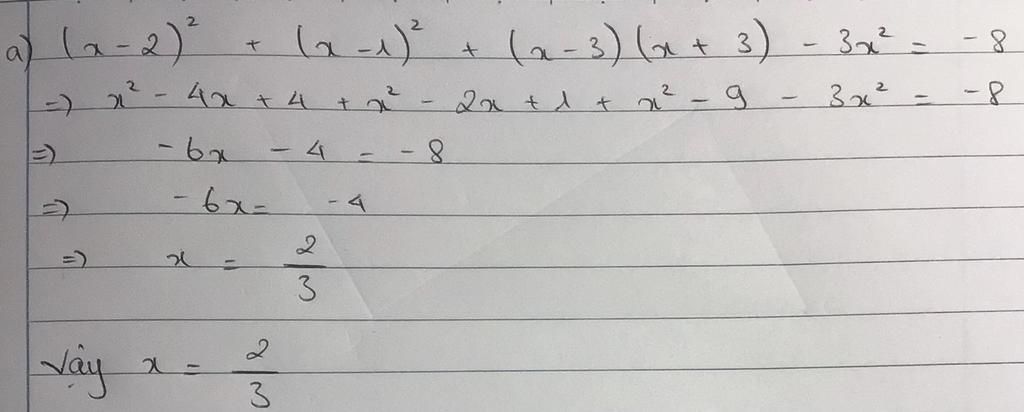 a) (x - 2)² + (x - 1)² + (x - 3)(x + 3) - 3x² = -8
=) x² - 4x + 4 + x² - 2x + 1 + x² - 9 - 3x² = -8
=) -6x - 4 = -8
=) -6x = -4
=) x = 2/3
Vậy x = 2/3